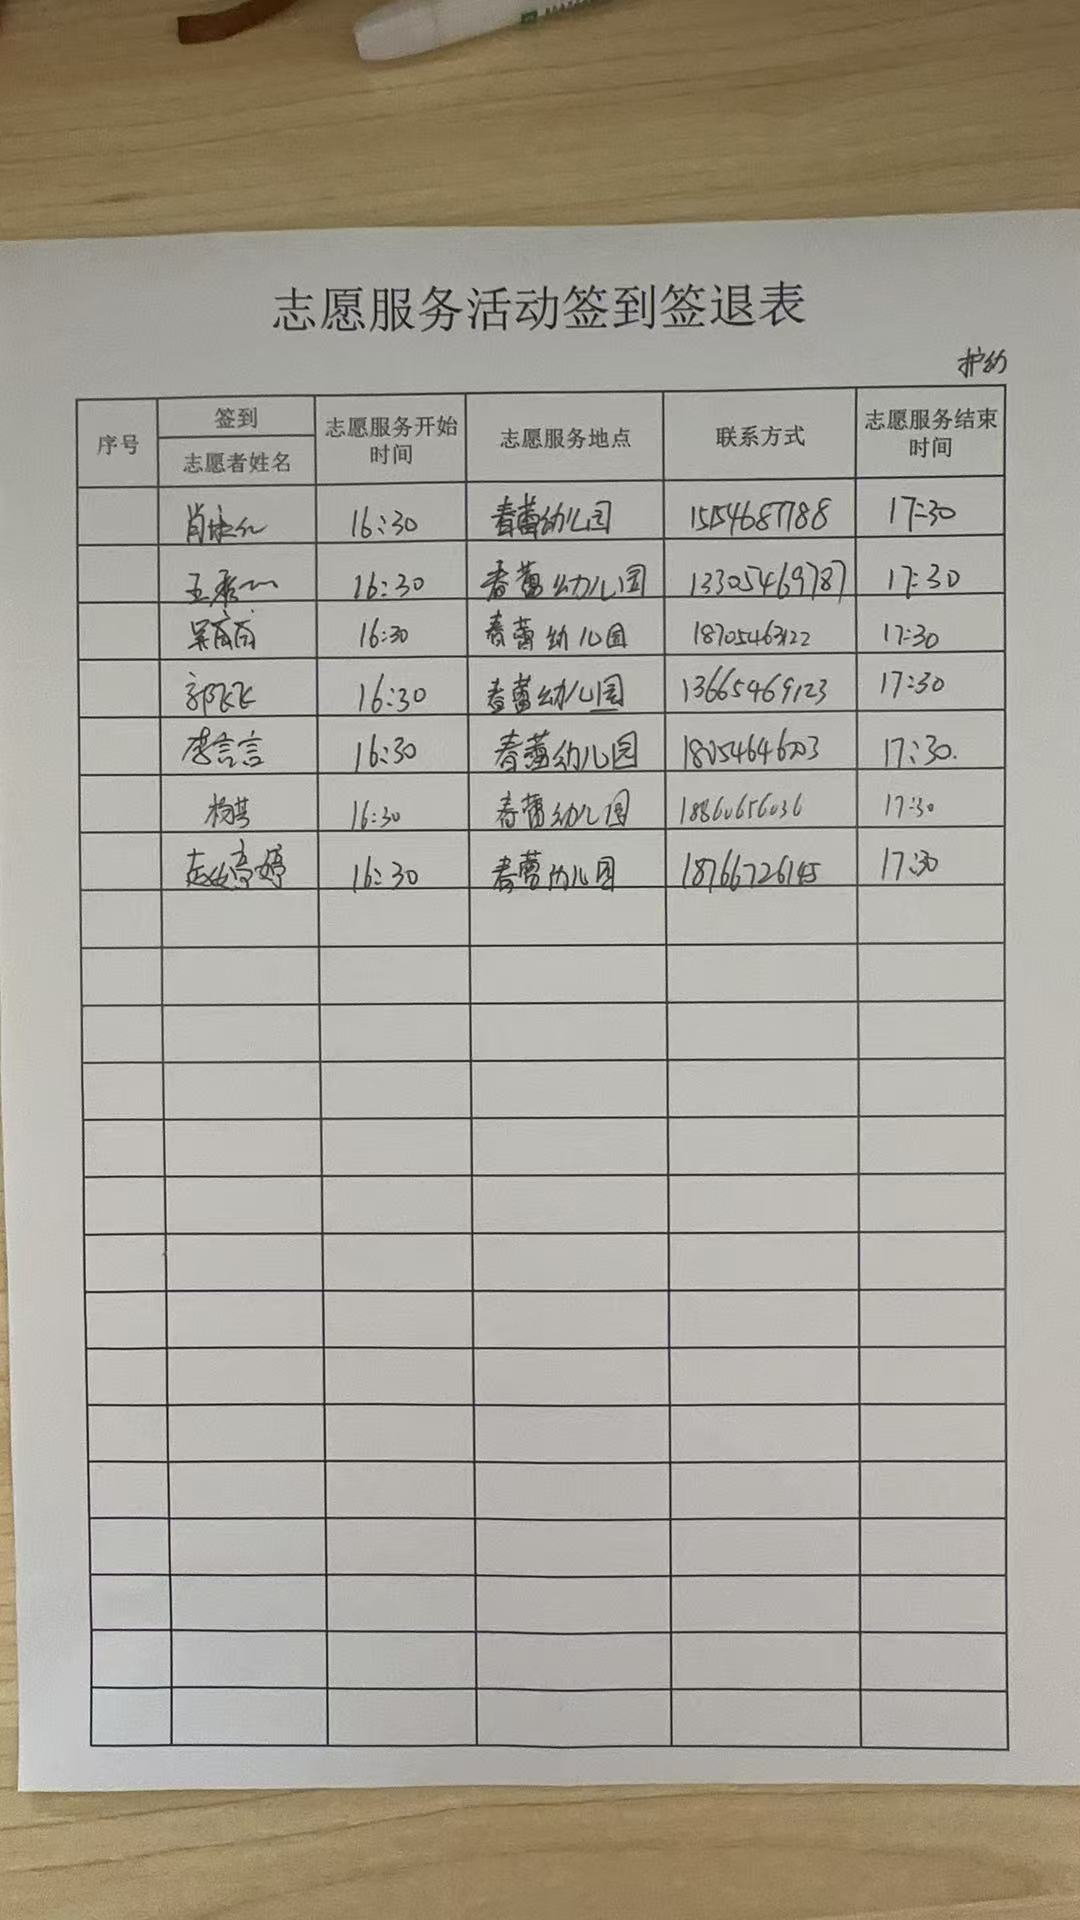 志愿服务活动签到签退表
护幼
序号 签到 志愿者姓名 志愿服务开始时间 志愿服务地点 联系方式 志愿服务结束时间
16:30 春蕾幼儿园 15154687788 17:30
16:30 春蕾幼儿园 13305469787 17:30
吴丽丽 16:30 春蕾幼儿园 18705463122 17:30
郭飞飞 16:30 春蕾幼儿园 13665469123 17:30
李言言 16:30 春蕾幼儿园 17:30.
杨芸 16:30 春蕾幼儿园 18860656036 17:30
16:30 春蕾幼儿园 18766726145 17:30